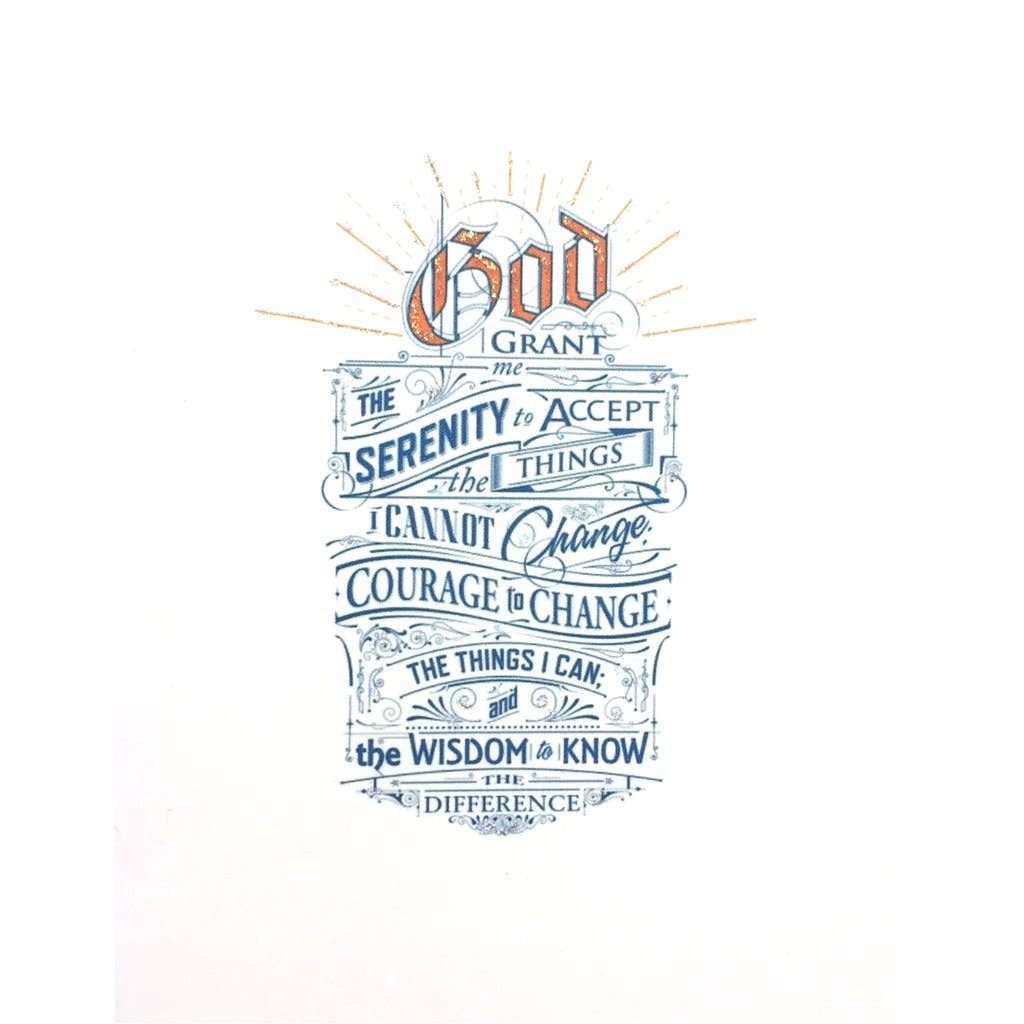 God
GRANT
me
THE
SERENITY to ACCEPT
the THINGS
I CANNOT Change;
COURAGE to CHANGE
THE THINGS I CAN;
and
the WISDOM to KNOW
THE
DIFFERENCE